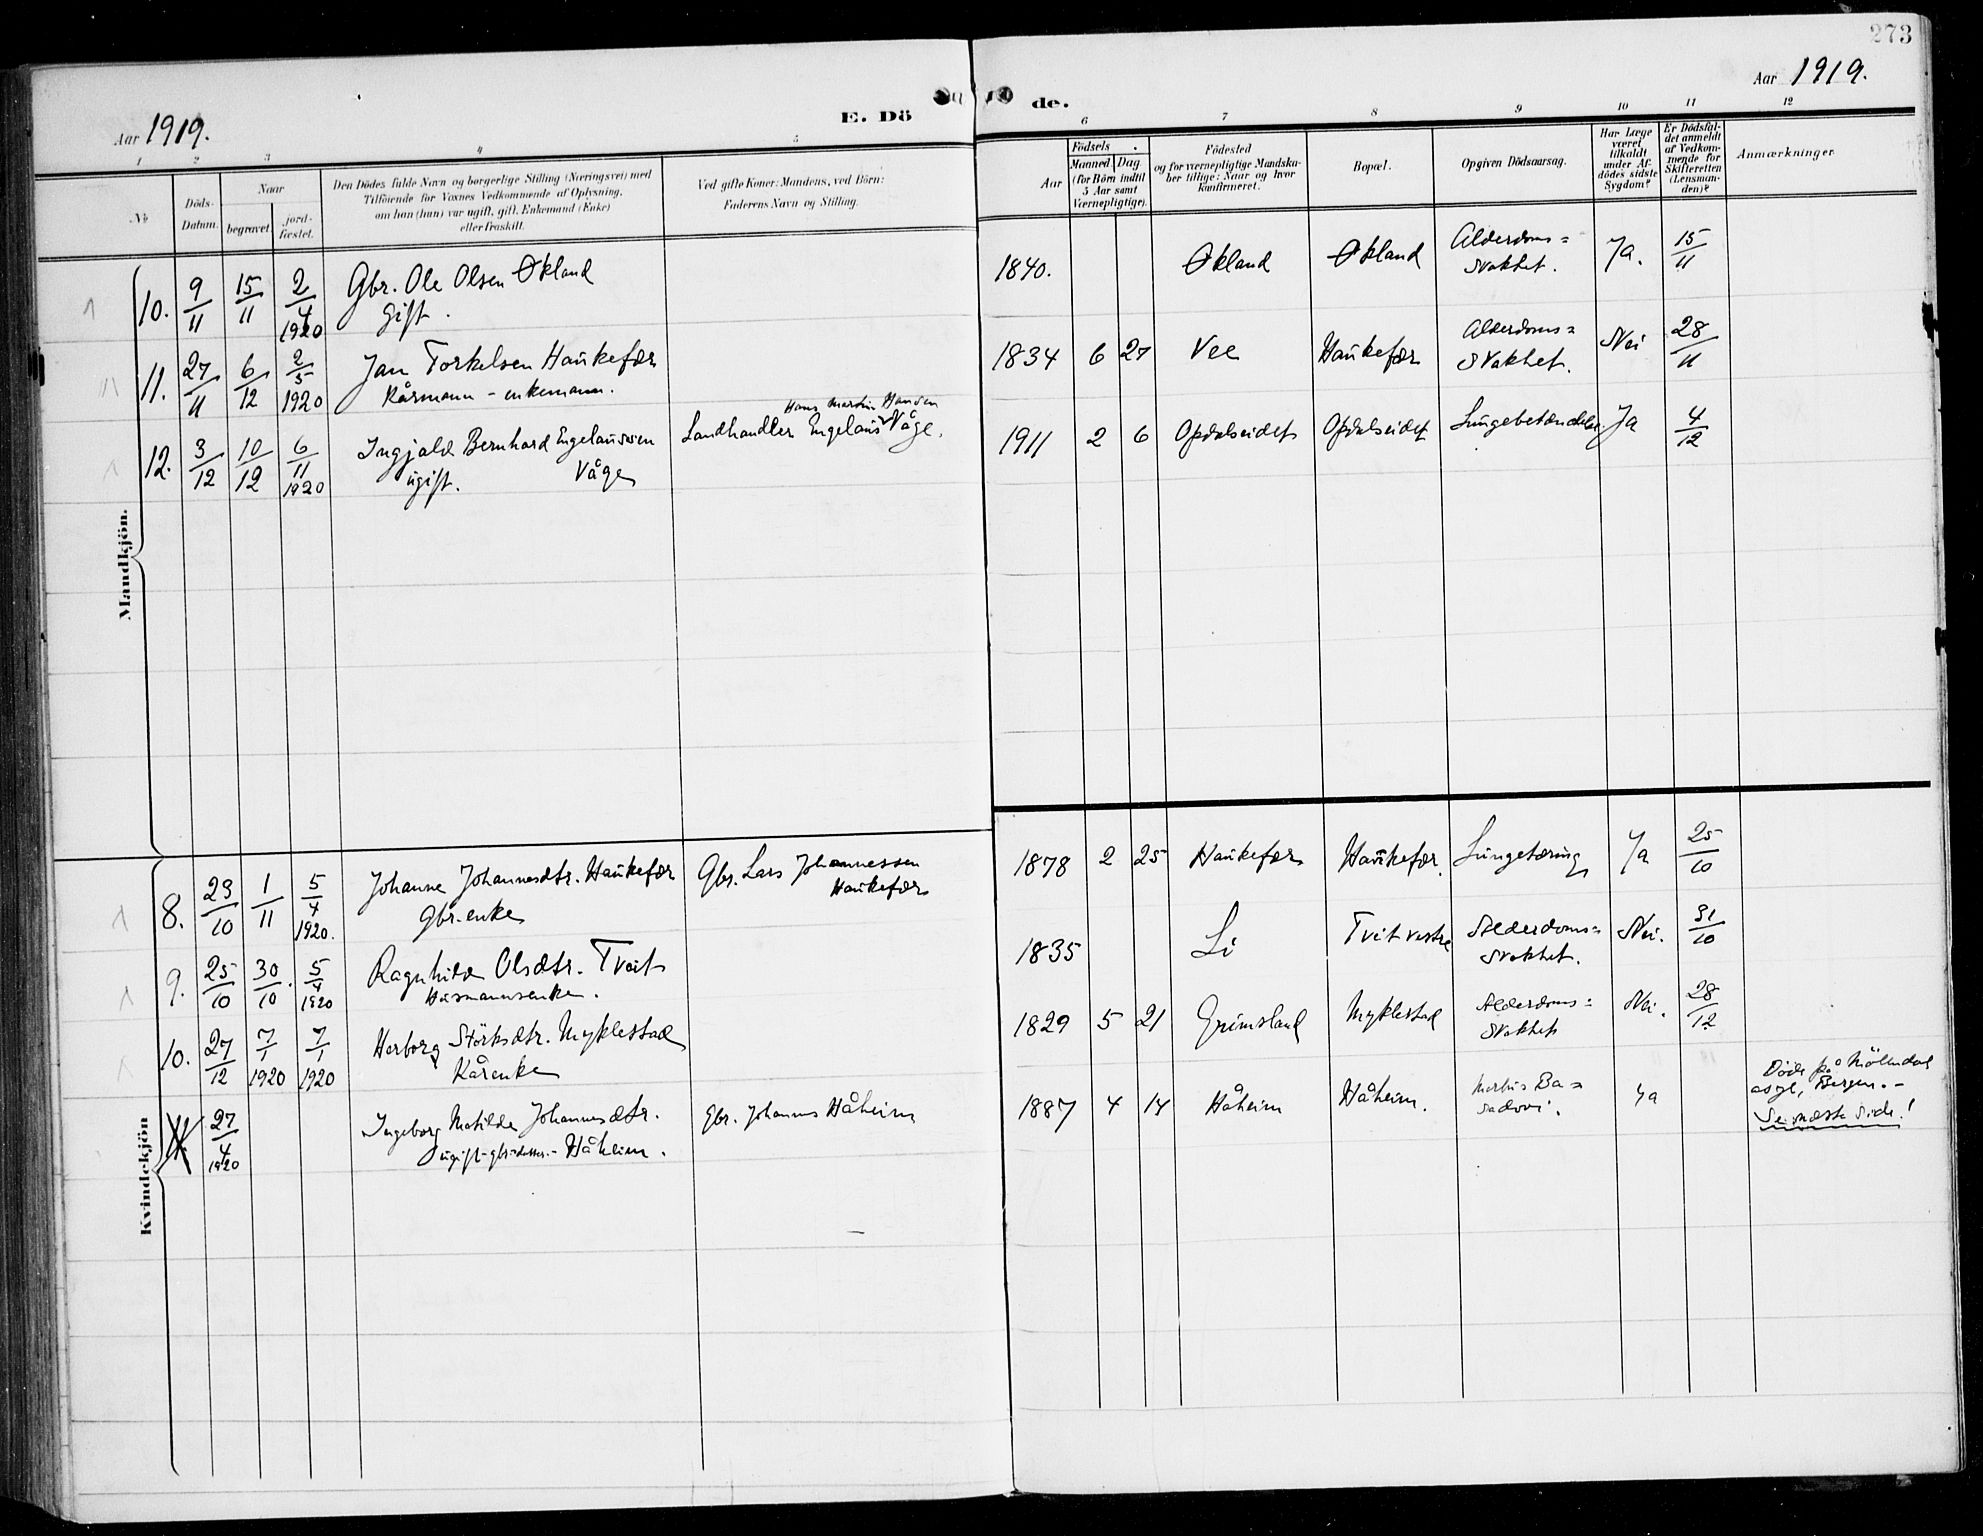 273
Aar 1919.
E. Dö de.
Aar 1919.
1 2 3 4 5 6 7 8 9 10 11 12
No.
Döds-
Datum.
Naar
begravet.
jord-
fæstet.
Den Dödes fulde Navn og borgerlige Stilling (Næringsvei) med
Tilföiende for Voxnes Vedkommende af Oplysning,
om han (hun) var ugift, gift, Enkemand (Enke)
eller fraskilt.
Ved gifte Koner: Mandens, ved Börn:
Faderens Navn og Stilling.
Födsels
Aar
Maaned Dag
(for Börn indtil
5 Aar samt
Værnepligtige).
Födested
og for værnepligtige Mandska-
ber tillige: Naar og hvor
konfirmeret.
Bopæl.
Opgiven Dödsaarsag.
Har Læge
været
tilkaldt
under Af-
dödes sidste
Sygdom?
Er Dödsfal-
det anmeldt
af Vedkom-
mende for
Skifteretten
(Lensman-
den)?
Anmærkninger.
Mandkjön.
10. 9/11 15/11 2/4 1920 Gbr. Ole Olsen Økland
gift.
1840. Økland Økland Alderdoms=
svakhet. Ja. 15/11
11. 27/11 6/12 2/5 1920 Jan Torkelsen Haukefær
Kårmann - enkemann.
1834 6 27 Vee Haukefær Alderdoms=
svakhet. Nei 28/11
12. 3/12 10/12 6/11 1920 Ingjald Bernhard Engelaussen
ugift. Våge
Hans Martin Hansen
Landhandler Engelaus Våge.
1911 2 6 Opdalseidet Opdalseidet Lungebetændelse Ja 4/12
Kvindekjön
8. 23/10 1/11 5/4 1920. Johanna Johannesdtr. Haukefær
Gbr.enke
Gbr. Lars Johannessen
Haukefær
1878 2 25 Haukefær Haukefær. Lungetæring Ja 25/10
9. 25/10 30/10. 5/4 1920 Ragnhilda Olsdtr. Tveit
Husmannsenke.
1835 Li Tveit vestre Alderdoms=
svakhet. Nei. 31/10
10. 27/12 7/1 1920 7/1 1920 Herborg Störksdtr. Myklestad
Kårenke
1829 5 21 Grimsland Myklestad Alderdoms=
svakhet Nei. 28/12
11 27/4 1920 Ingeborg Matilda Johannesdtr.
ugift - gbr.datter. - Håheim.
Gbr. Johannes Håheim
1887 4 14 Håheim Håheim. Morbus Ba=
sedovi. Ja
Döde på Möllendal
asyl, Bergen. -
Se næste side!